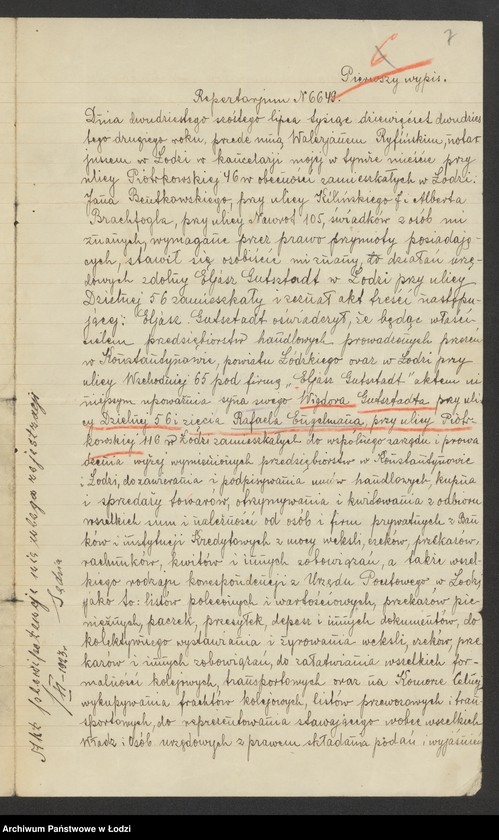 6
7
Pierwszy wypis.
Repertorjum N 6649.
Dnia dwudziestego szóstego lipca tysiąc dziewięćset dwudzies
tego drugiego roku, przede mną Walerjanem Ryfińskim, notar
juszem w Łodzi w kancelarji mojej w tymże mieście przy
ulicy Piotrkowskiej 46 w obecności zamieszkałych w Łodzi:
Jana Bentkowskiego, przy ulicy Kilińskiego i Alberta
Brachfogla, przy ulicy Nawrot 105, świadków z osób mi
znanych, wymagane przez prawo przymioty posiadają-
cych, stawił się osobiście mi znany, to działań urzę-
dowych zdolny Eljasz Gutsztadt w Łodzi przy ulicy
Dzielnej 56 zamieszkały i zeznał akt treści następu-
jącej: Eljasz Gutsztadt oświadczył, że będąc właści-
cielem przedsiębiorstw handlowych prowadzonych przezeń
w Konstantynowie, powiatu Łódzkiego oraz w Łodzi przy
ulicy Wschodniej 65 pod firmą „Eljasz Gutsztadt" aktem ni
niejszym upoważnia syna swego Wigdora Gutsztadta przy uli
cy Dzielnej 56 i zięcia Rafaela Engelmana, przy ulicy Piotr-
kowskiej 116 w Łodzi zamieszkałych do wspólnego zarządu i prowa
dzenia wyżej wymienionych przedsiębiorstw w Konstantynowie
i Łodzi, do zawierania i podpisywania umów handlowych, kupna
i sprzedaży towarów, otrzymywania i kwitowania z odbioru
wszelkich sum i należności od osób i firm prywatnych z Ban
ków i instytucji Kredytowych z mocy weksli, czeków, przekazów,
rachunków, kwitów i innych zobowiązań, a także wszel-
kiego rodzaju korespondencji z Urzędu Pocztowego w Łodzi
jako to: listów poleconych i wartościowych, przekazów pie
niężnych, paczek, przesyłek, depesz i innych dokumentów, do
kolektywnego wystawiania i żyrowania weksli, czeków, prze
kazów i innych zobowiązań, do załatwiania wszelkich for-
malności kolejowych, transportowych oraz na Komorze Celnej
wykupywania frachtów kolejowych, listów przewozowych i tran
sportowych, do reprezentowania stawającego wobec wszelkich
Władz i Osób urzędowych z prawem składania podań i wyjaśnień
Akt plenipotencji nie ulega rejestracji
1/VI-1923. Sędzia
Archiwum Państwowe w Łodzi